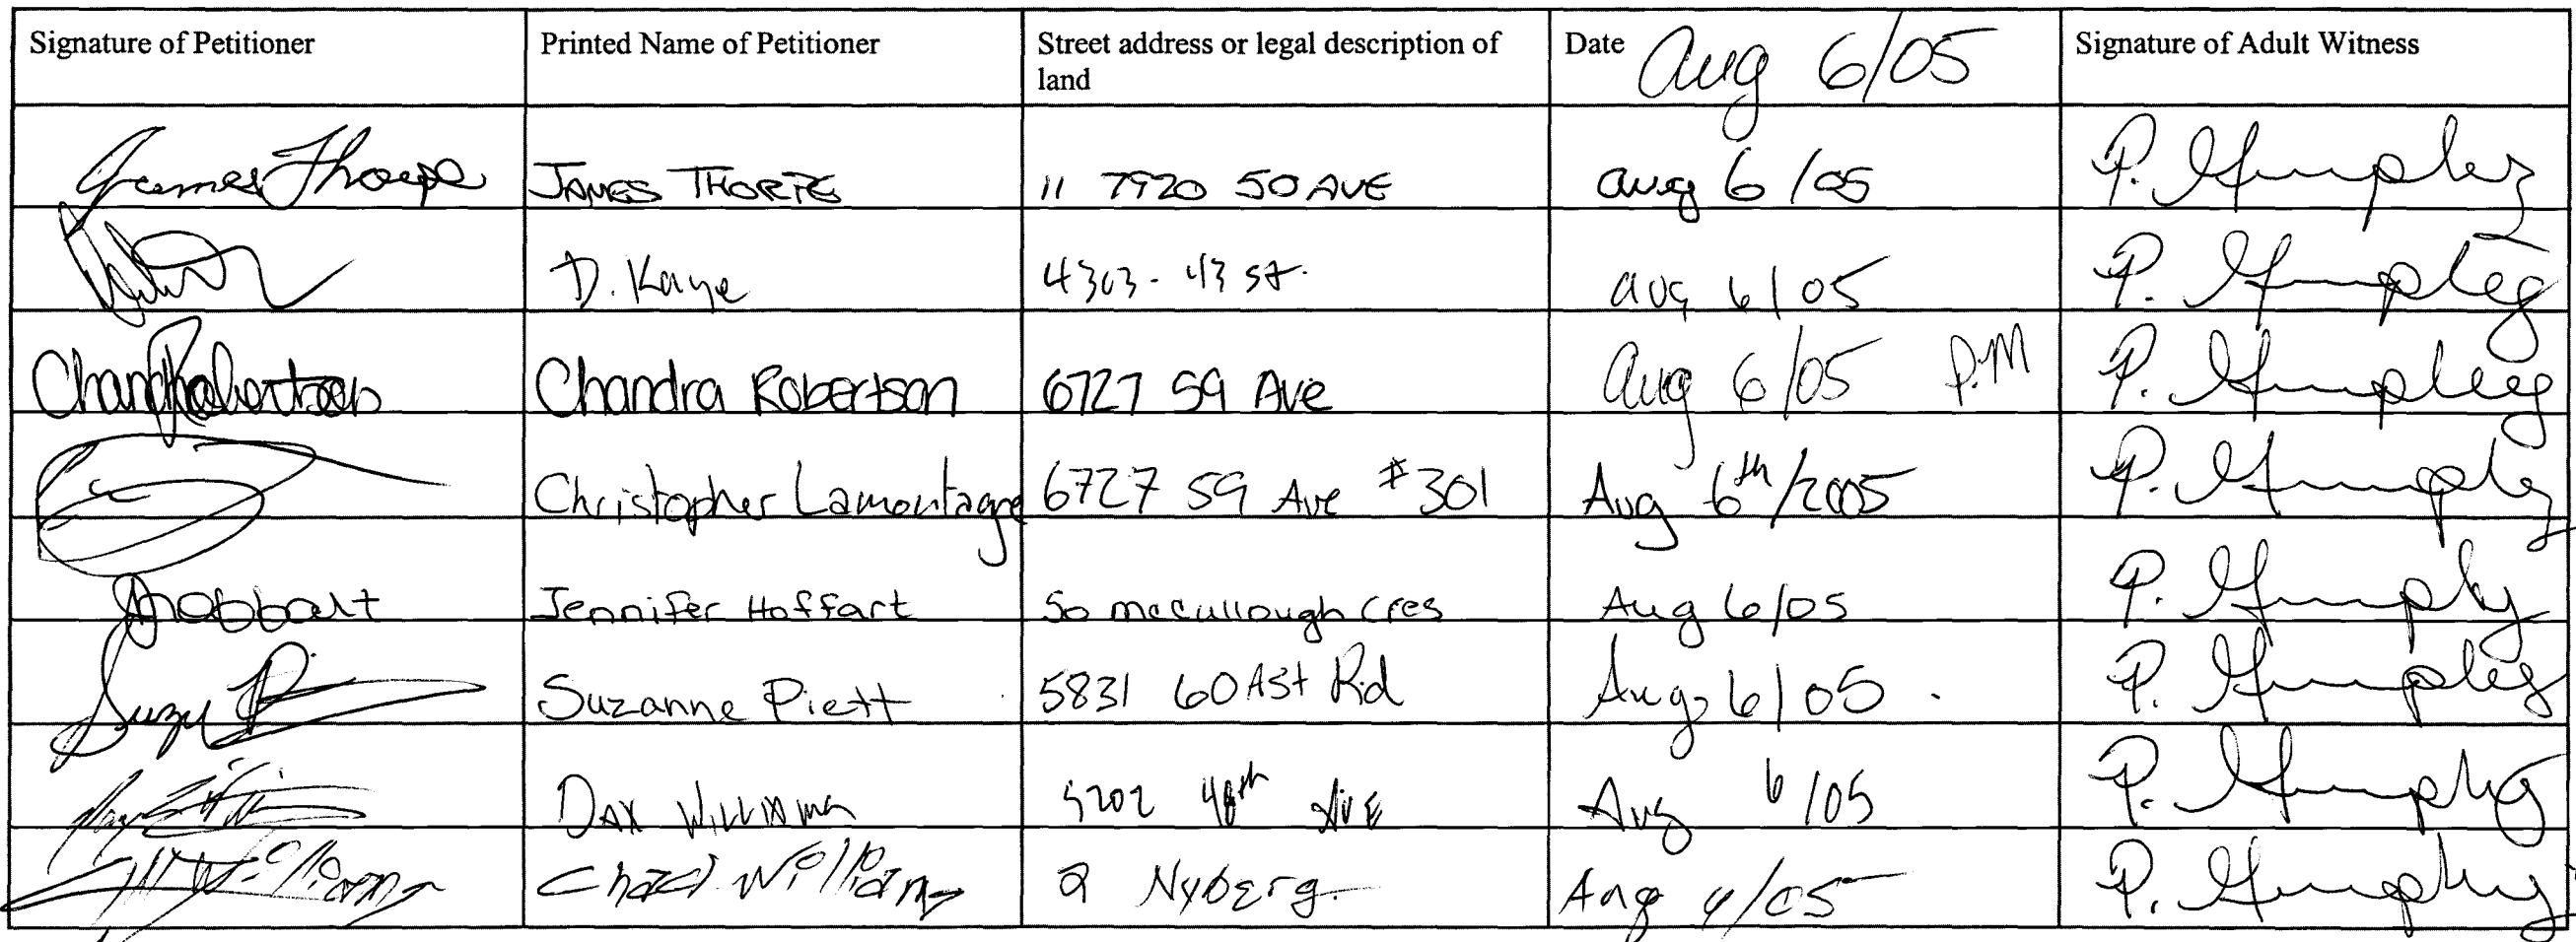 Signature of Petitioner Printed Name of Petitioner Street address or legal description of land Date Aug 6/05 Signature of Adult Witness
James Thorpe JAMES THORPE 11 7920 50 AVE aug 6/05 P.
D. Kaye 4303 - 43 st. aug 6/05 P.
Chandra Robertson 6727 59 Ave Aug 6/05 P.M P.
Christopher Lamontagne 6727 59 Ave #301 Aug 6th/2005 P.
JHoffart Jennifer Hoffart 50 mccullough cres Aug 6/05 P.
Suzy P Suzanne Piett 5831 60 Ast Rd Aug 6/05 P.
DAX WILLIAMS 5202 48th AVE Aug 6/05 P.
Williams Chad Williams 2 Nyberg Aug /05 P.